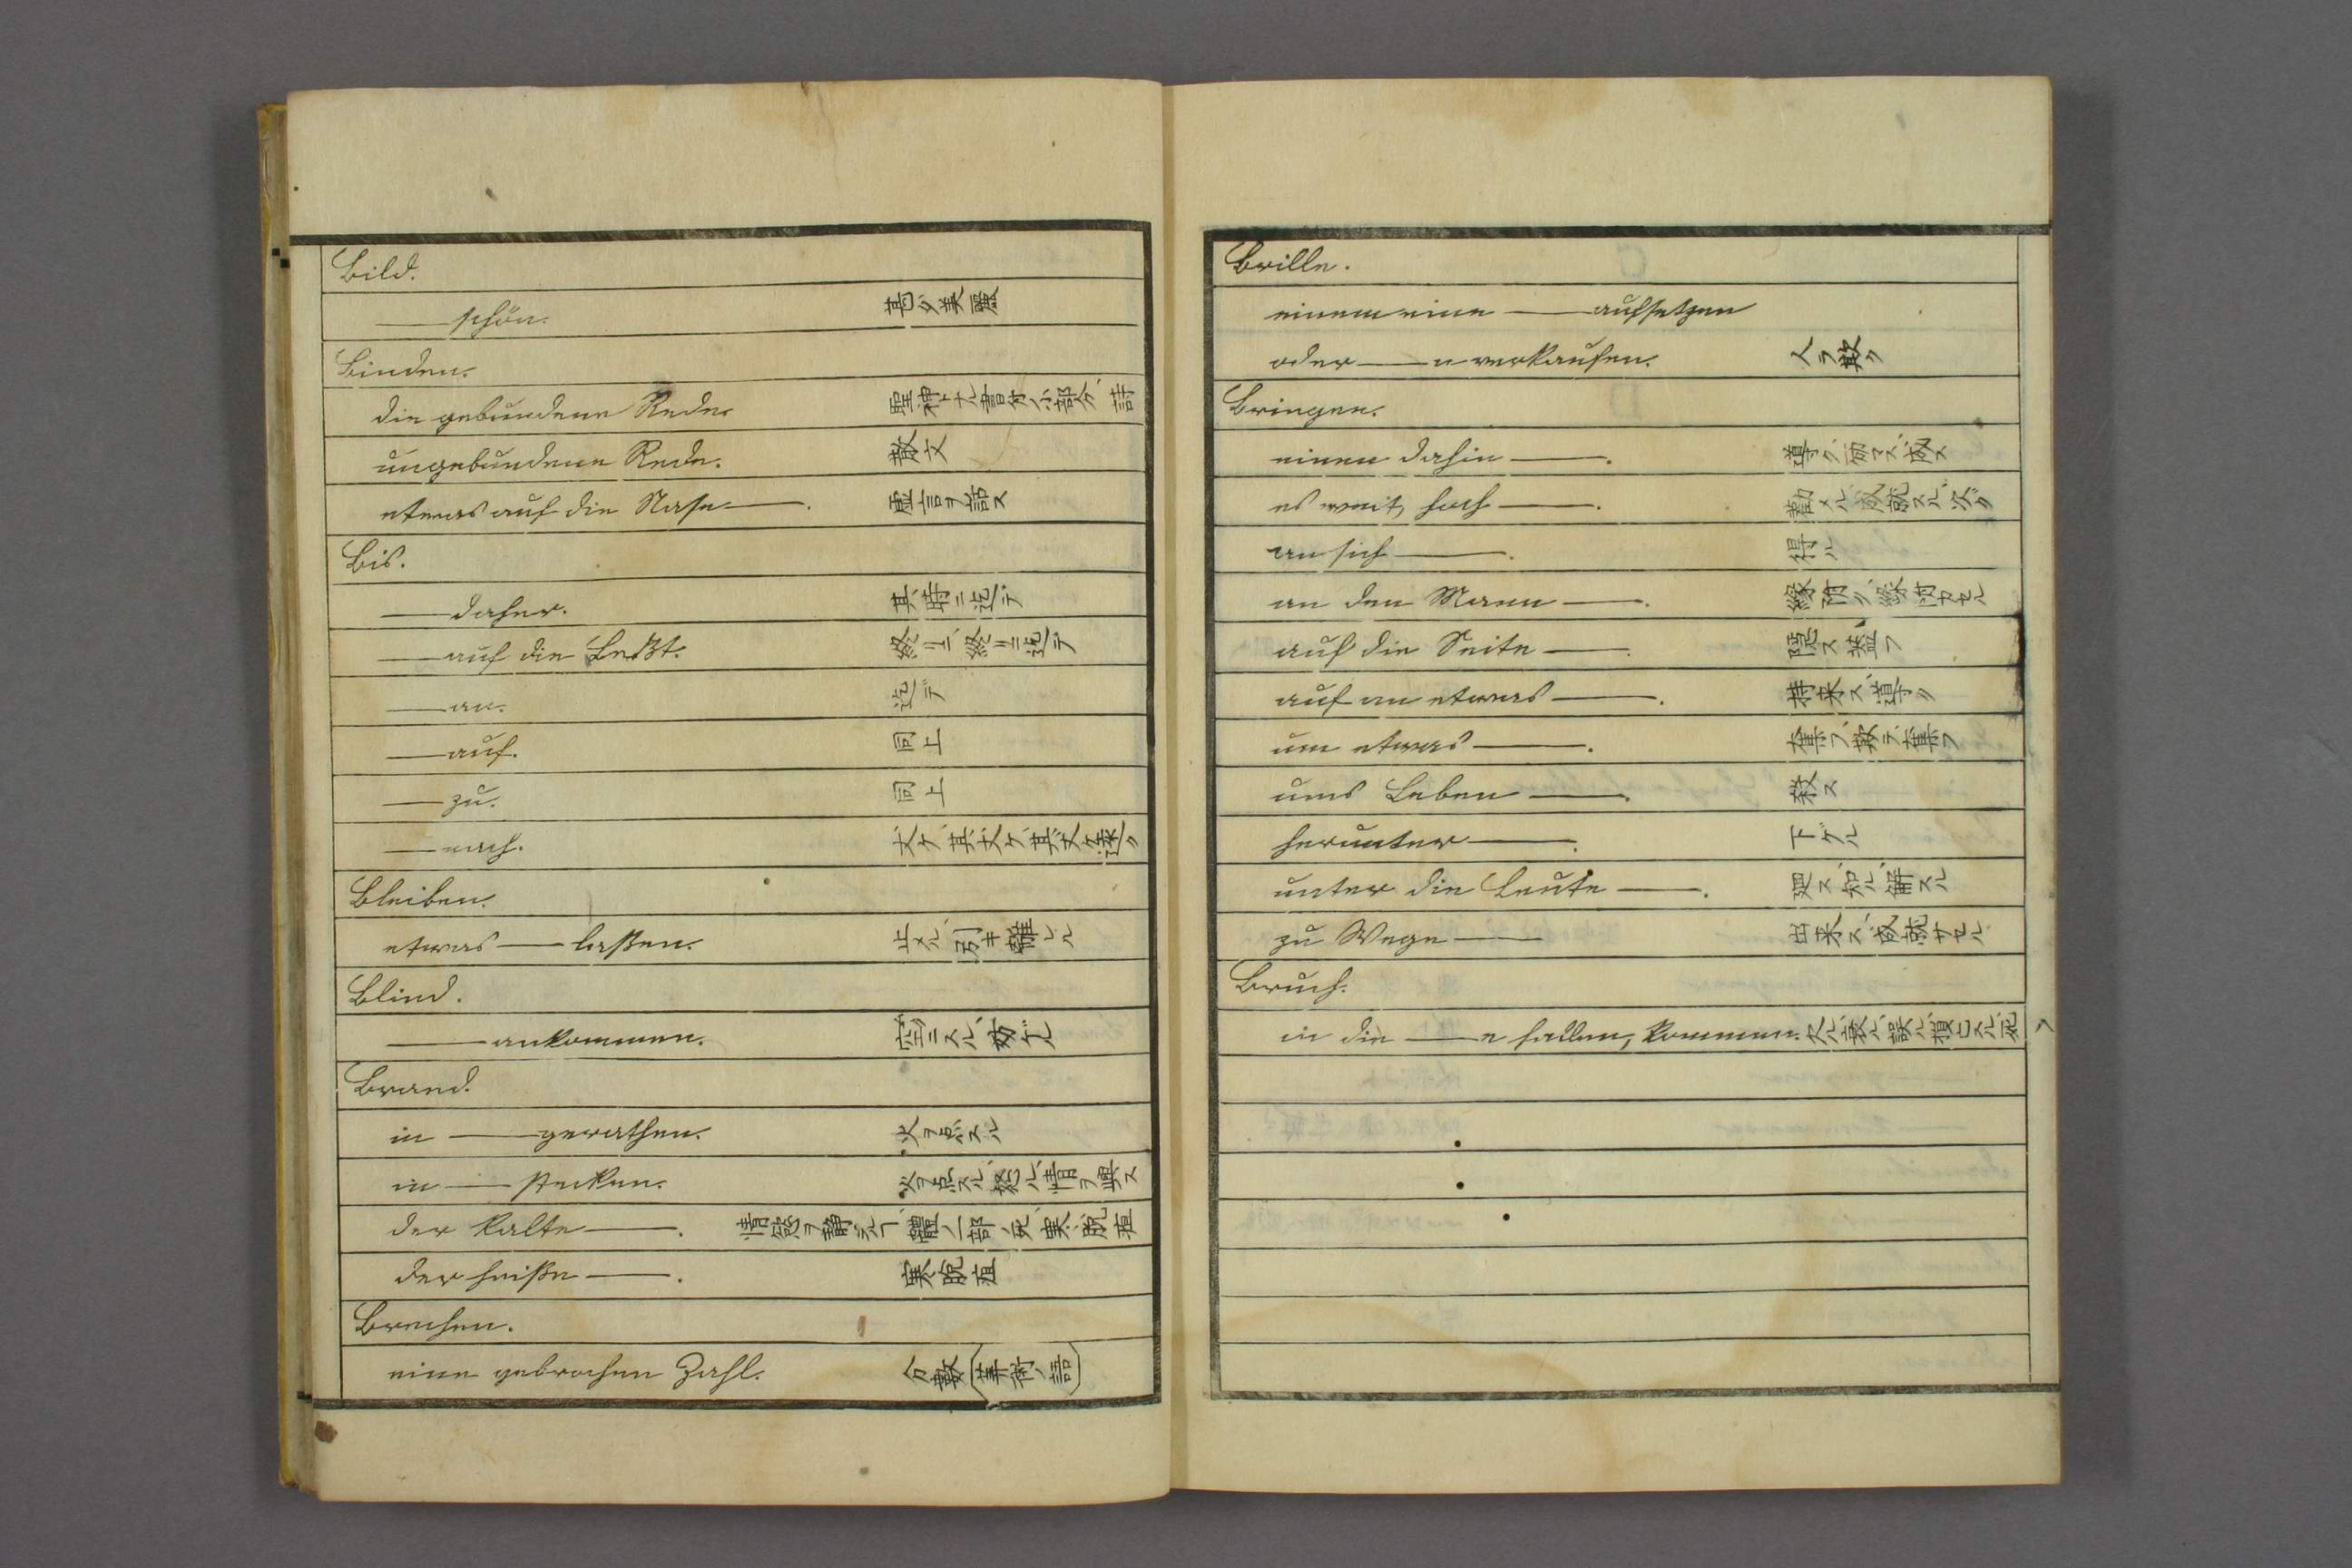 Bild.
—— schön. 甚ダ美麗
Binden.
die gebundene Rede.
ungebundene Rede. 散文
etwas auf die Nase ——. 虚言ヲ話ス
Bis.
—— daher. 其時ニ迄デ
—— auf die Letzt. 終リニ、終リニ迄デ
—— an. 迄デ
—— auf. 同上
—— zu. 同上
—— nach.
Bleiben.
etwas —— laßen. 止メル、引キ離レル
Blind.
—— ankommen. 空シクスル、妨ゲル
Brand.
in —— gerathen. 火ヲ点スル
in —— stecken. 火ヲ点スル、怒ル、情ヲ興ス
der kalte ——.
der heiße ——. 寒脱疽
Brechen.
eine gebrochen Zahl. 分數(筭術ノ語)
Brille.
einem eine —— aufsetzen
oder —— n verkaufen. 人ヲ欺ク
Bringen.
einen dahin ——.
es weit, hoch ——.
an sich ——. 得ル
an den Mann ——. 縁附ク、縁附カセル
auf die Seite ——. 隠ス、盗ム
auf an etwas ——. 持来ス、導ク
um etwas ——. 奪フ、欺テ奪フ
ums Leben ——. 殺ス
herunter ——. 下ゲル
unter die Leute ——.
zu Wege —— 出来ス、成就サセル
Bruch.
in die —— e fallen, kommen.